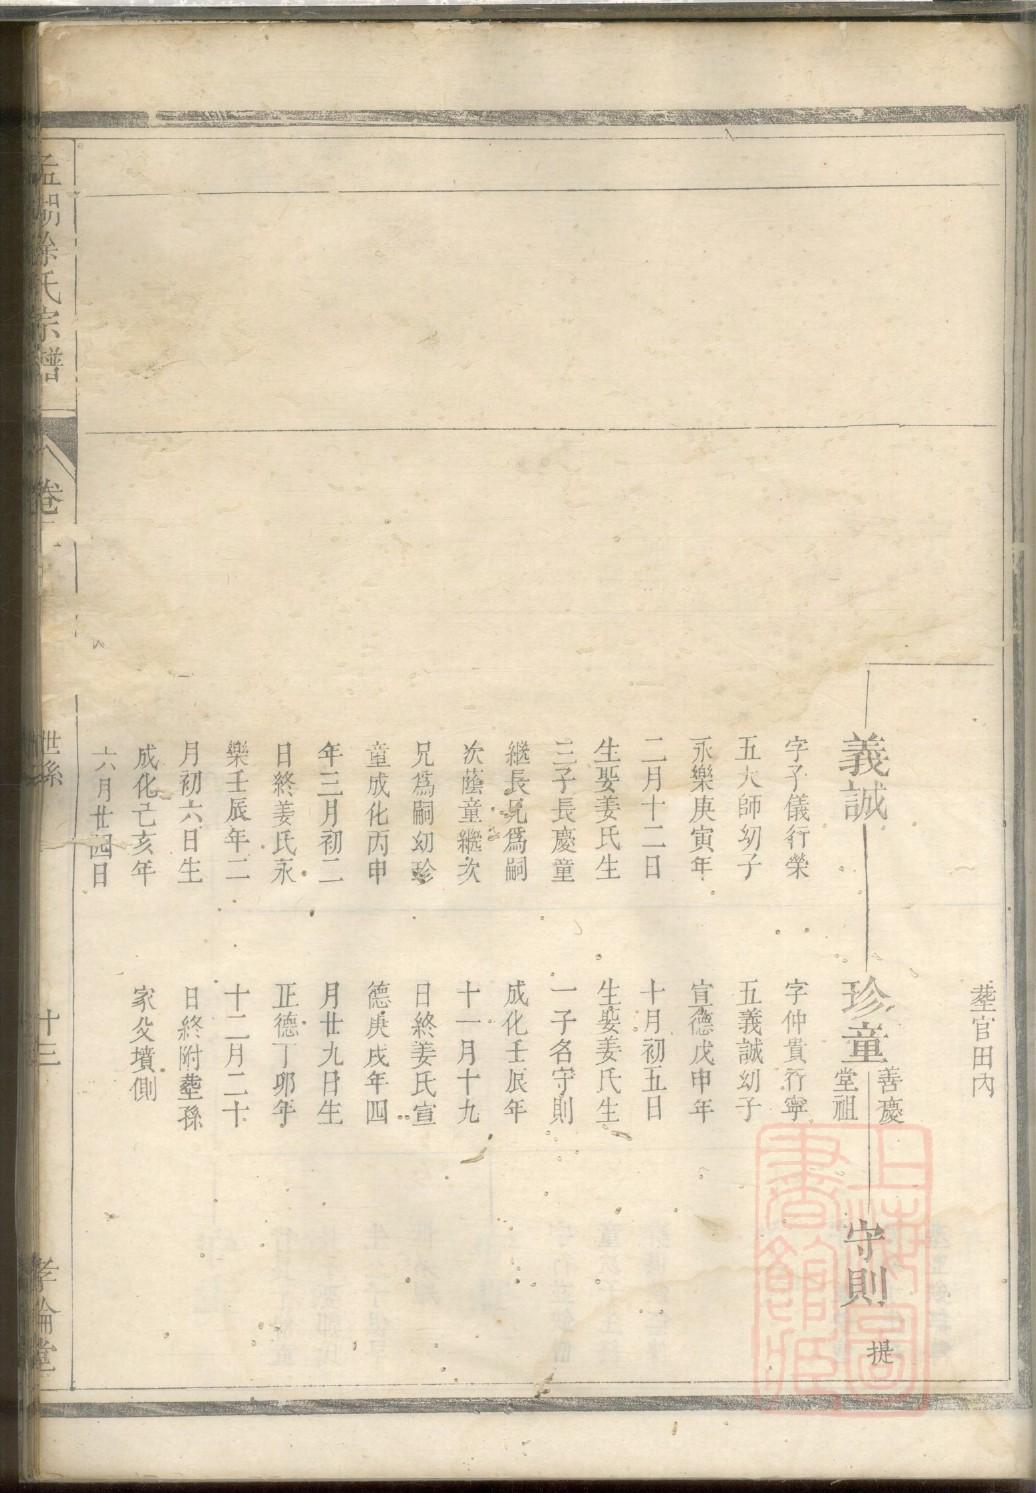 塟官田內
義誠
字子儀行榮
五大師幼子
永樂庚寅年
二月十二日
生娶姜氏生
三子長慶童
繼長兄爲嗣
次蔭童繼次
兄爲嗣幼珍
童成化丙申
年三月初二
日終姜氏永
樂壬辰年二
月初六日生
成化己亥年
六月廿四日
珍童
善慶
堂祖
字仲貴行寧
五義誠幼子
宣德戊申年
十月初五日
生娶姜氏生
一子名守則
成化壬辰年
十一月十九
日終姜氏宣
德庚戌年四
月廿九日生
正德丁卯年
十二月二十
日終附塟孫
家父墳側
守則
提
上海圖
書館藏
孟陽徐氏宗譜
卷
世系
十三
孝倫堂